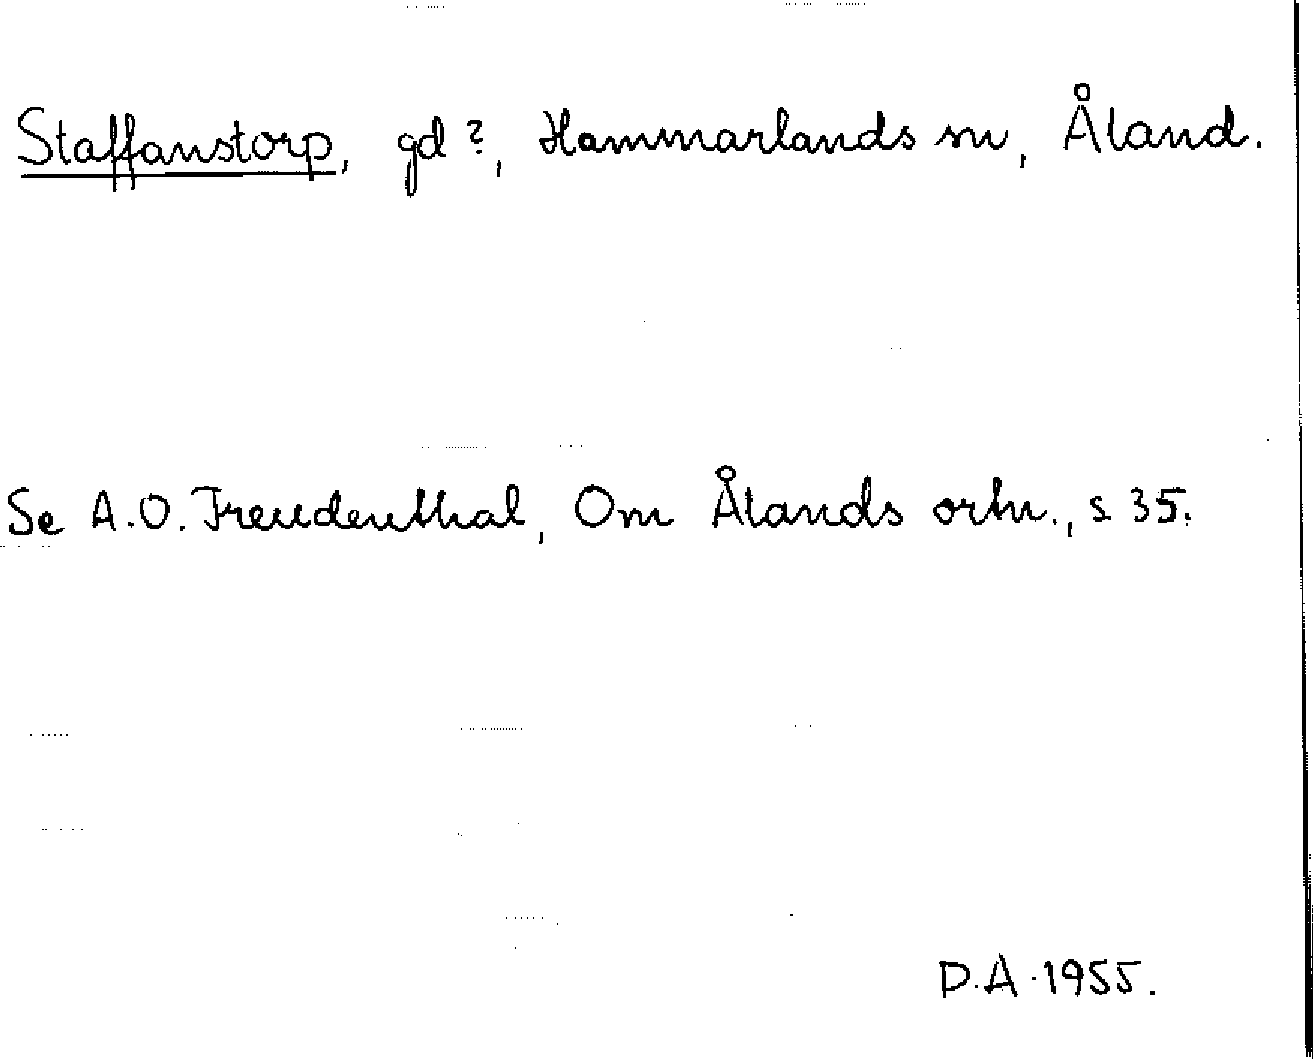 Staffanstorp, gd?, Hammarlands sn, Åland.
Se A.O. Freudenthal, Om Ålands ortn., s 35.
D.A. 1955.